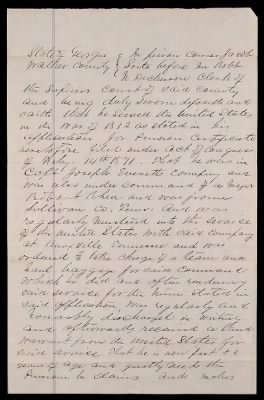 State of Georgia } In person comes Jacob
Walker County } Goits before me Robt
N Dickerson Clerk of
the Superior Court of said County
and being duly sworn deposeth and
saith that he served the United States
in the War of 1812 as stated in his
application for Pension Certificate
heretofore filed under act of Congress
of Feby. 14th 1871. That he was in
Capt Joseph Everetts Company and
was also under command of a Major
Robert Rhea and was from
Sullivan Co. Tenn. And was
regularly mustered into the service
of the United States with said Company
at Knoxville Tennessee and was
ordered to take charge of a team and
haul baggage for said command
which he did and after rendering
said service for the time stated in
said application was regularly and
honorably discharged in writing
and afterwards received a Land
warrant from the United States for
said service. That he is now past
years of age and greatly needs the
Pension he claims and makes